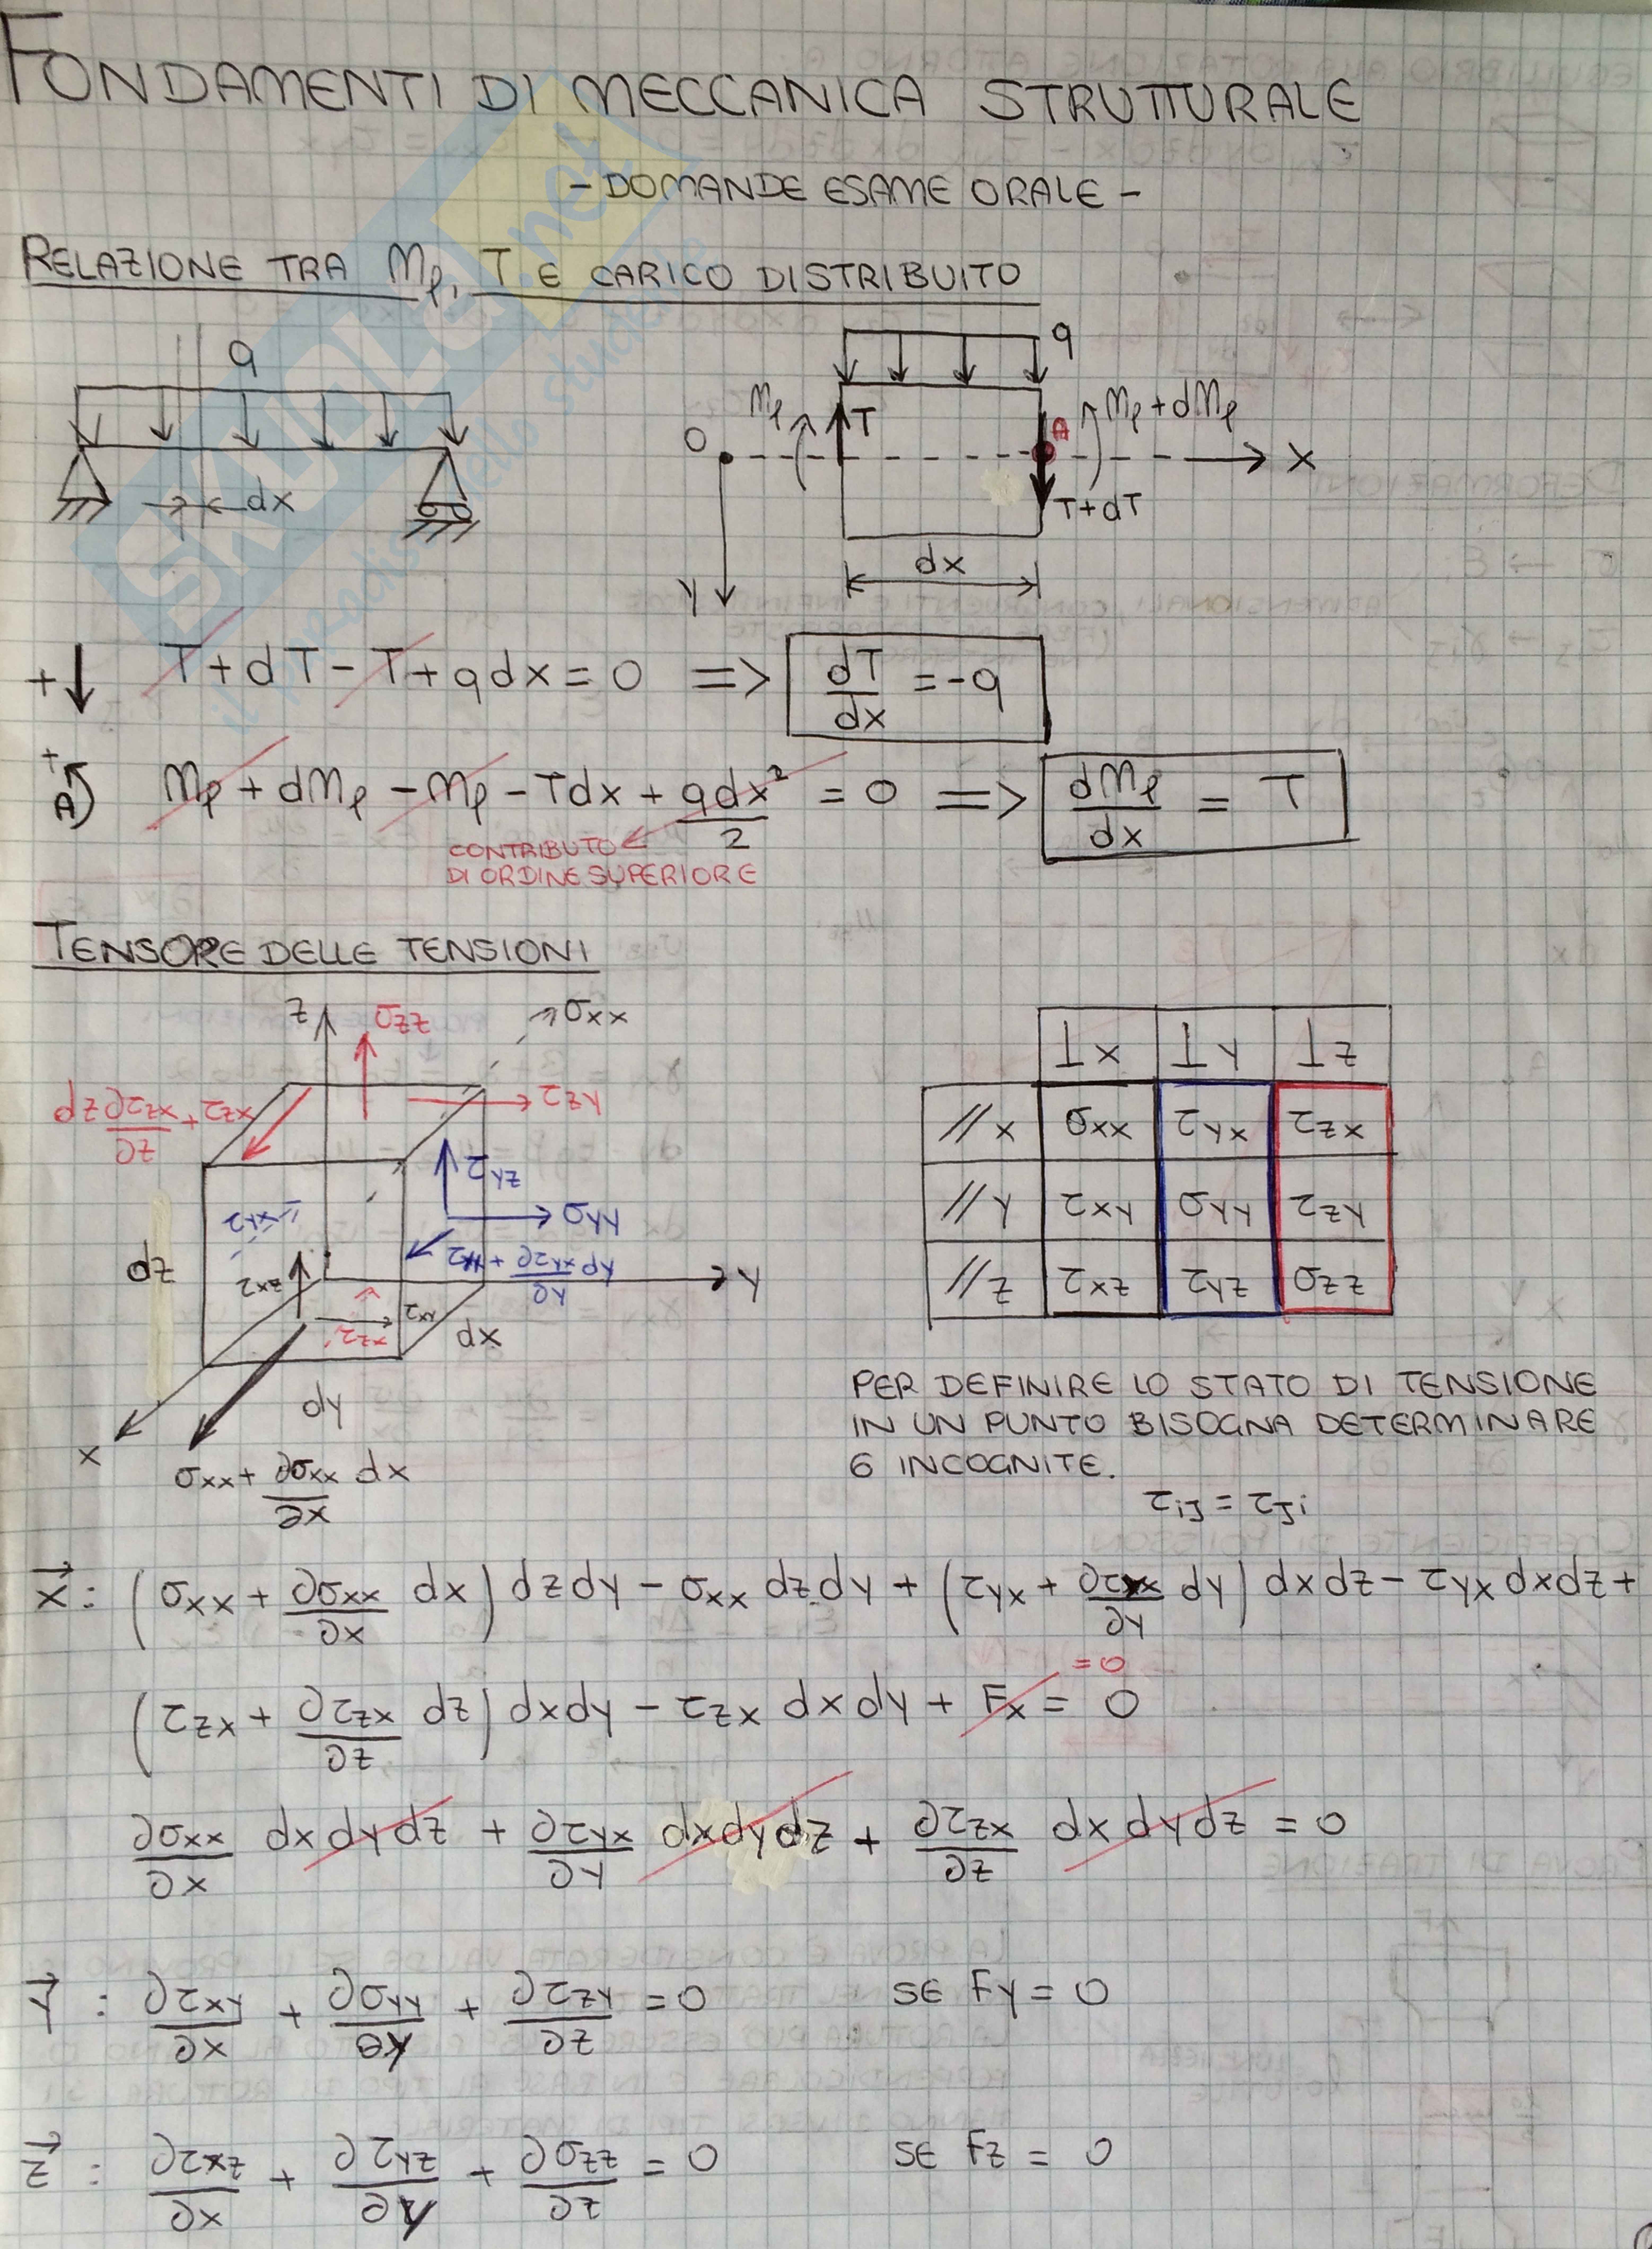 FONDAMENTI DI MECCANICA STRUTTURALE
- DOMANDE ESAME ORALE -
RELAZIONE TRA Mf, T E CARICO DISTRIBUITO
q
dx
q
Mf
T
A
Mf + dMf
O
X
T + dT
dx
Y
+↓ T + dT - T + qdx = 0 => dT/dx = -q
+ A Mf + dMf - Mf - Tdx + qdx²/2 = 0 => dMf/dx = T
CONTRIBUTO
DI ORDINE SUPERIORE
TENSORE DELLE TENSIONI
z
σzz
σxx
dz ∂τzx/∂z + τzx
τzy
τyz
τyx
σyy
dz
τxz
+ ∂τyx/∂y dy
y
τxy
τzx
dx
dy
x
σxx + ∂σxx/∂x dx
⊥x ⊥y ⊥z
//x σxx τyx τzx
//y τxy σyy τzy
//z τxz τyz σzz
PER DEFINIRE LO STATO DI TENSIONE
IN UN PUNTO BISOGNA DETERMINARE
6 INCOGNITE.
τij = τji
x: (σxx + ∂σxx/∂x dx) dzdy - σxx dzdy + (τyx + ∂τyx/∂y dy) dxdz - τyx dxdz +
(τzx + ∂τzx/∂z dz) dxdy - τzx dxdy + Fx = 0
= 0
∂σxx/∂x dxdydz + ∂τyx/∂y dxdydz + ∂τzx/∂z dxdydz = 0
y: ∂τxy/∂x + ∂σyy/∂y + ∂τzy/∂z = 0 SE Fy = 0
z: ∂τxz/∂x + ∂τyz/∂y + ∂σzz/∂z = 0 SE Fz = 0
SKUOLA.net
il paradiso dello studente